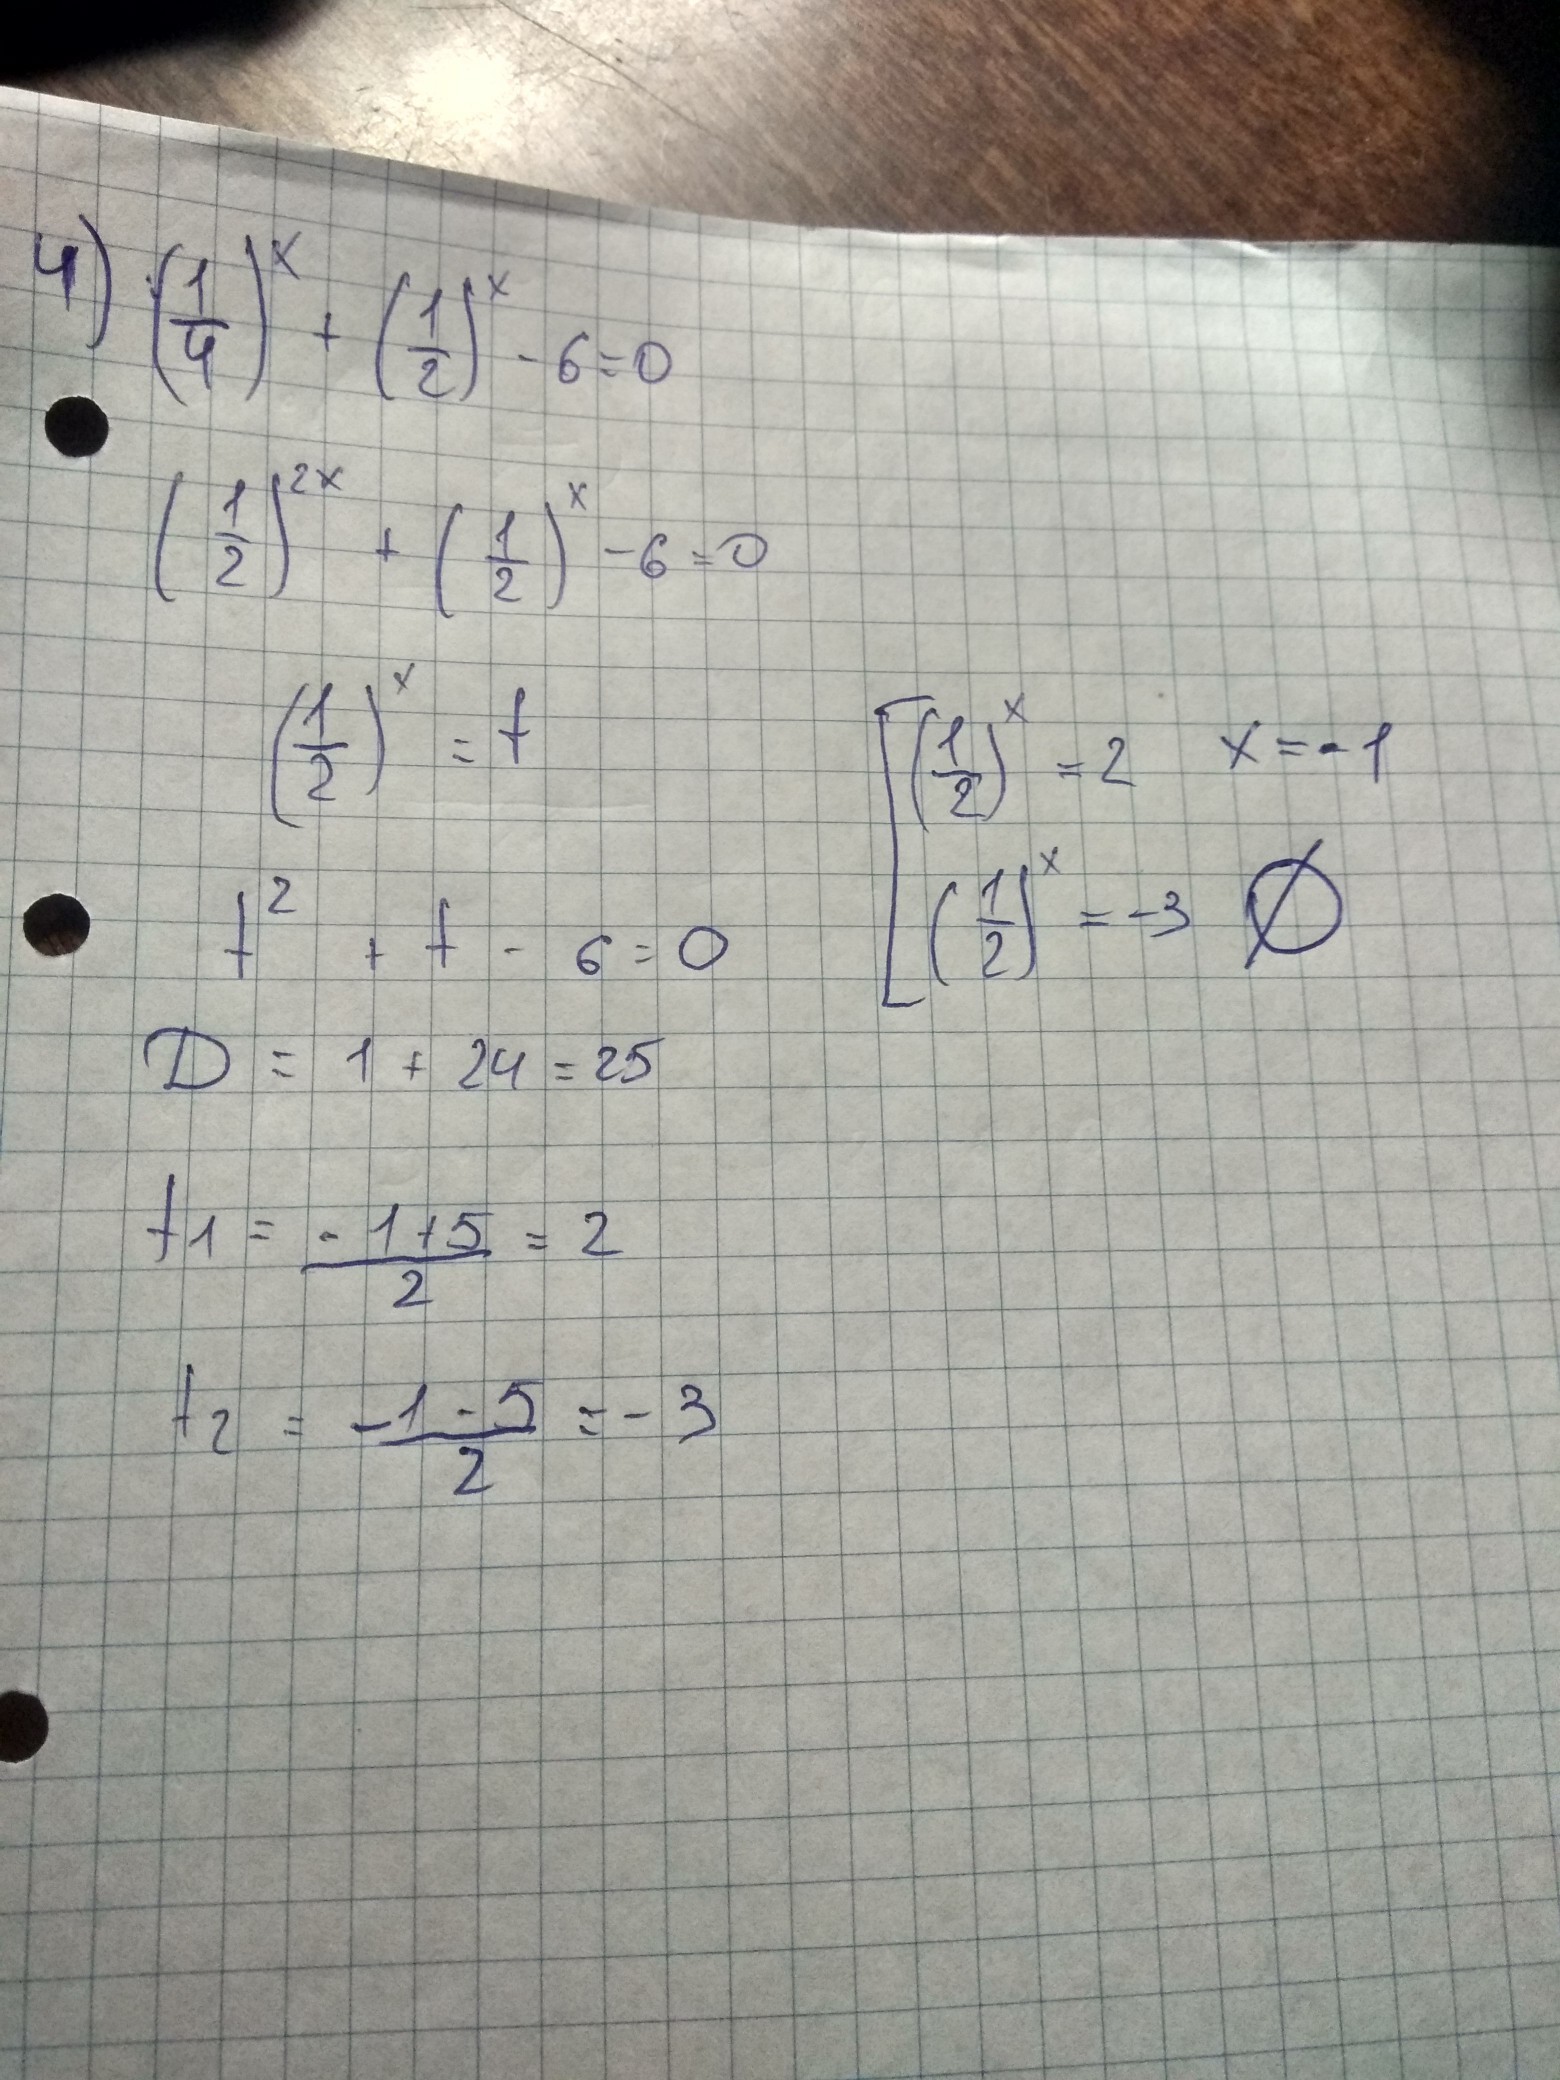 4) (1/4)^x + (1/2)^x - 6 = 0
(1/2)^2x + (1/2)^x - 6 = 0
(1/2)^x = t
t^2 + t - 6 = 0
D = 1 + 24 = 25
t1 = -1+5/2 = 2
t2 = -1-5/2 = -3
[ (1/2)^x = 2 x = -1
(1/2)^x = -3 ∅